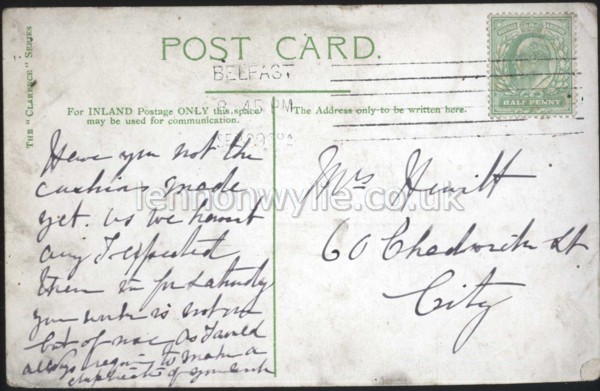 THE "CLARENCE" SERIES
POST CARD.
BELFAST
8.45 PM
For INLAND Postage ONLY this space
may be used for communication.
The Address only to be written here.
HALF PENNY
lennonwylie.co.uk
Have you not the
cushions made
yet. as we havnt
any I expected
them in for Saturday
your work is not
but of
always to make a
duplicate of
Mrs Hewitt
60 Chadwick St
City